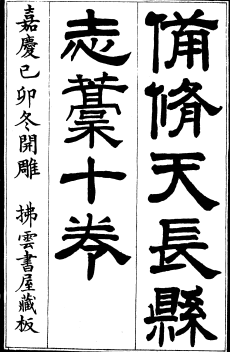 備脩天長縣
志藁十卷
嘉慶己卯冬開雕 拂雲書屋藏板